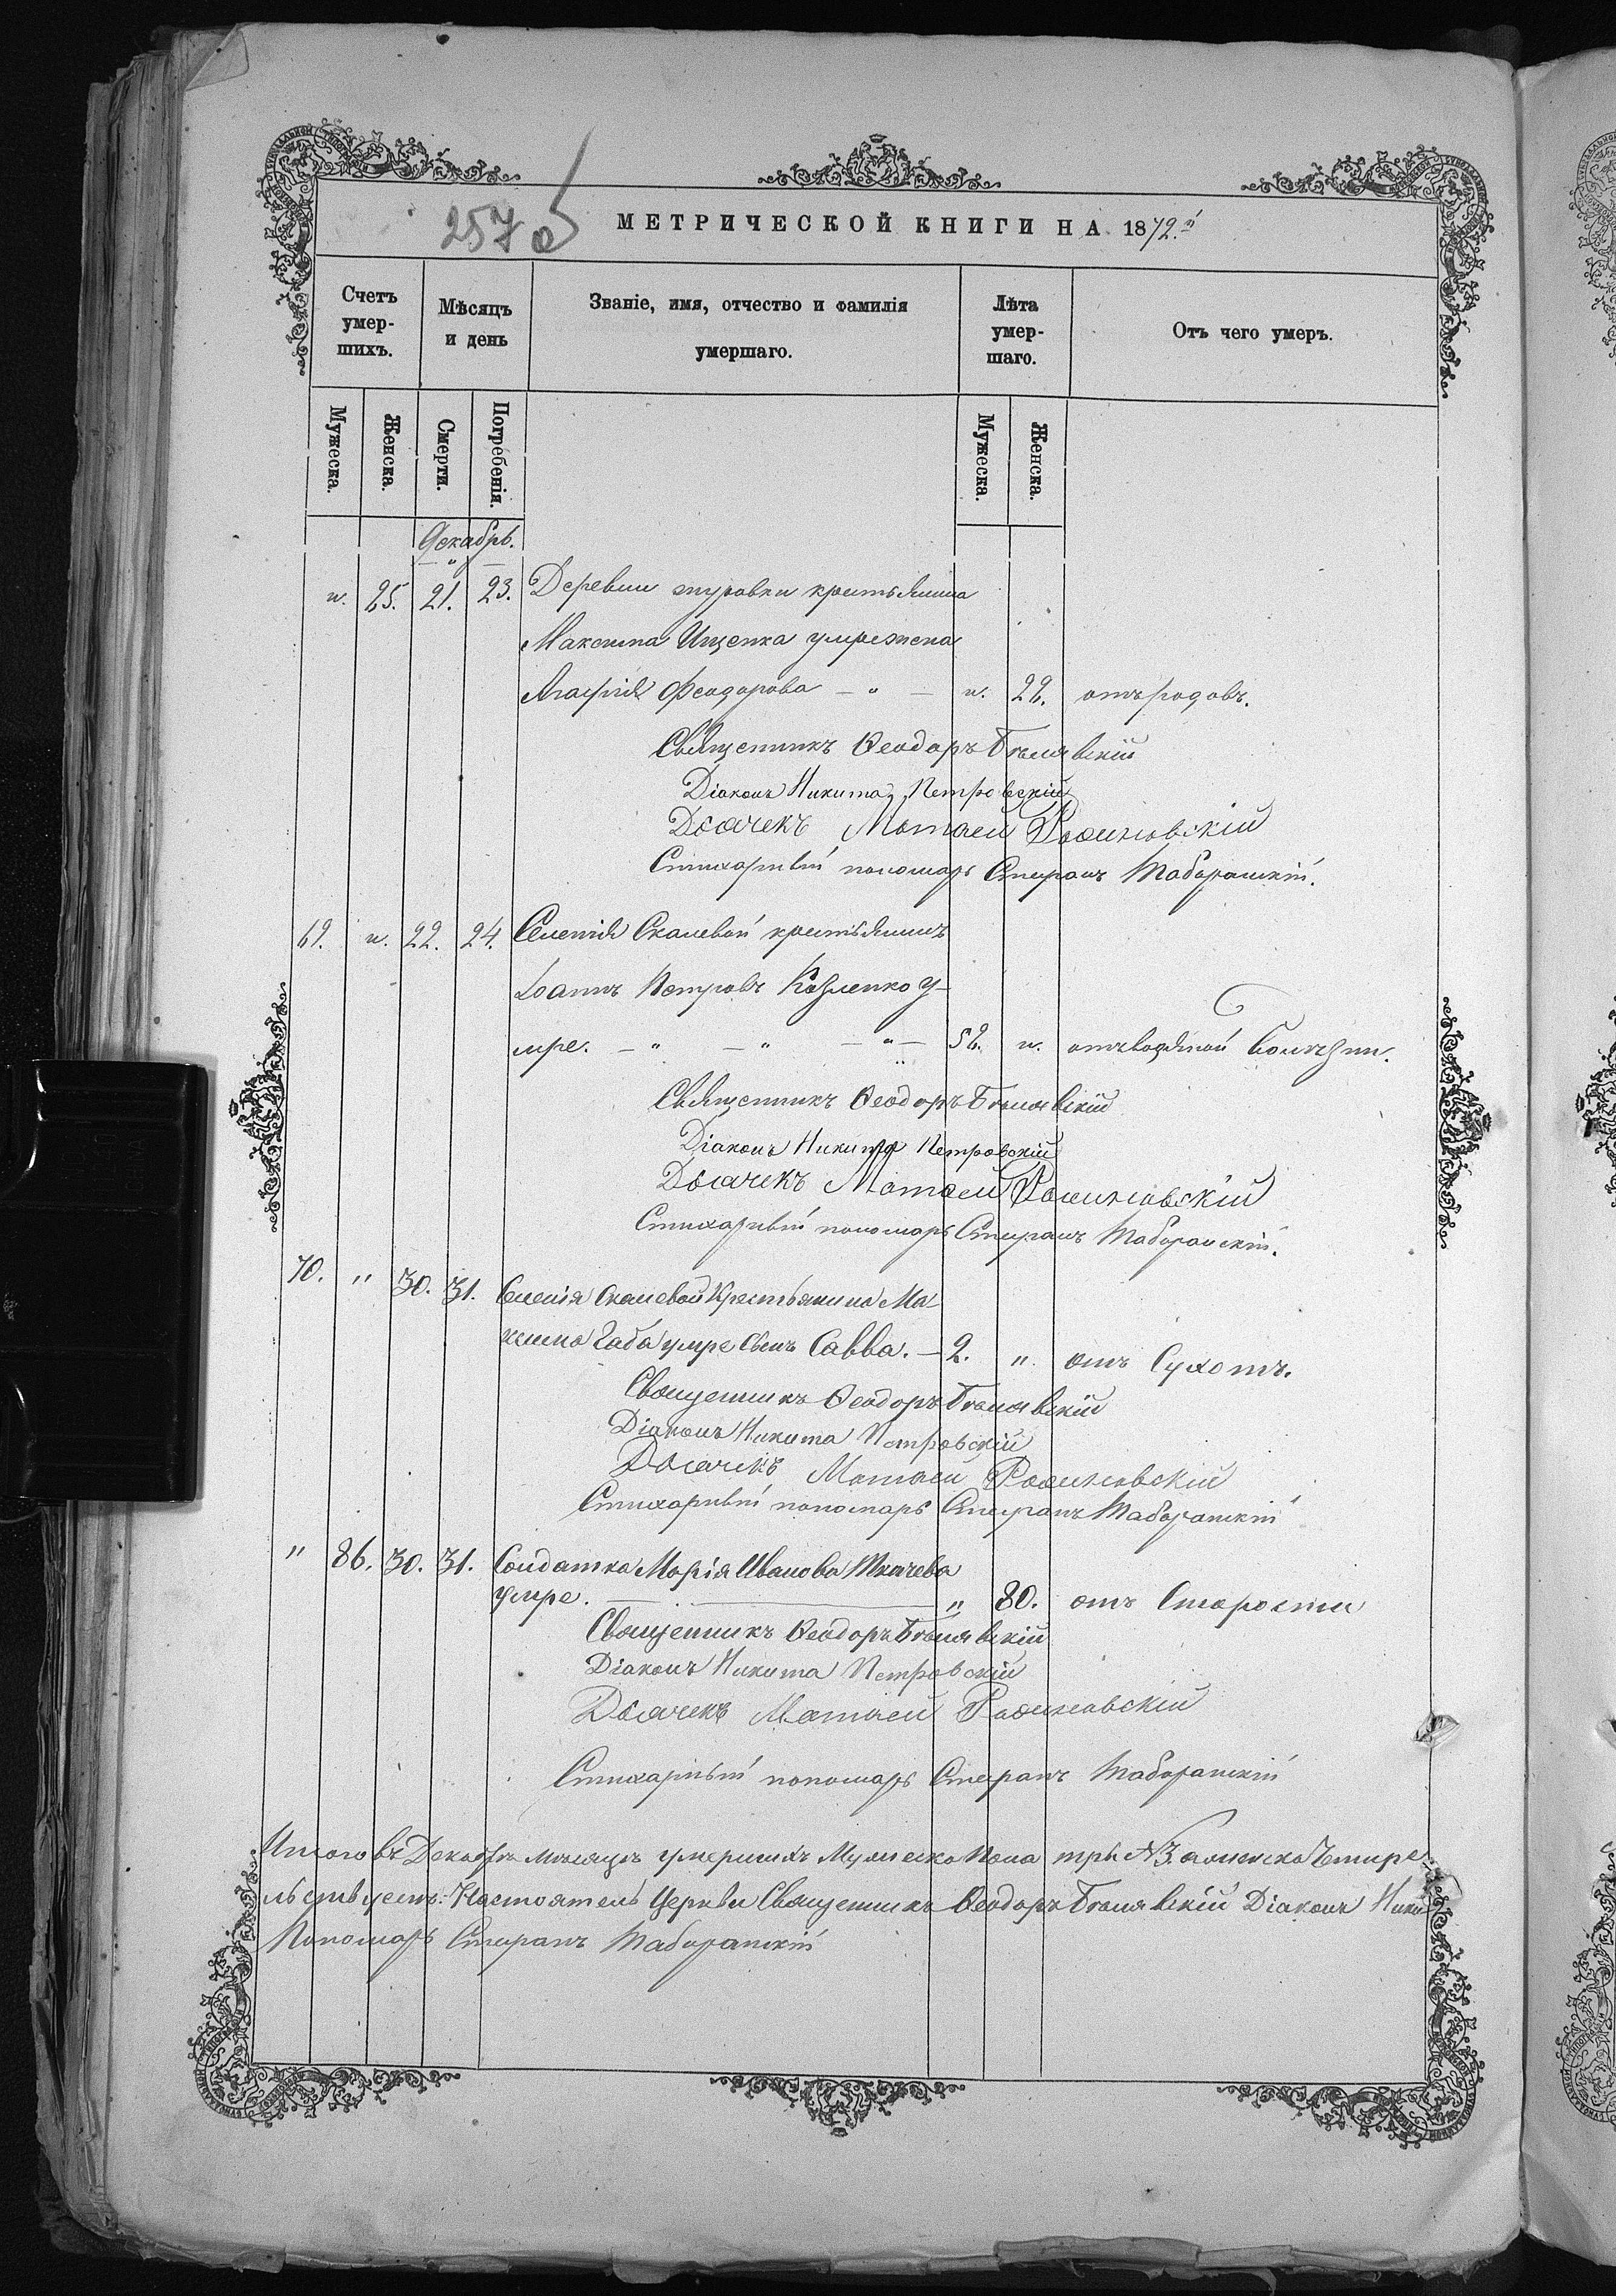 257 об
МЕТРИЧЕСКОЙ КНИГИ НА 1872.й
Счетъ умер-шихъ.
Мѣсяцъ и день
Званіе, имя, отчество и фамилія умершаго.
Лѣта умер-шаго.
Отъ чего умеръ.
Мужеска. Женска. Смерти. Погребенія. Мужеска. Женска.
Декабрь.
„ 21. 23. Деревни крестьянина
Максима Ищенка умре жена
Агафія Феодорова — „ — „ 22. отъ родовъ.
Священникъ Ѳеодоръ Бѣлявскій
Діаконъ Никита Петровскій
Дьячекъ Матѳей
Стихарный пономарь Стефанъ Таборанскій.
69. „ 22. 24. Селенія Скалевой крестьянинъ
Іоаннъ Петровъ Козленко у-
мре. — „ — „ — „ — 52. „ отъ водяной болѣзни.
Священникъ Ѳеодоръ Бѣлявскій
Діаконъ Никита Петровскій
Дьячекъ Матѳей
Стихарный пономарь Стефанъ Таборанскій.
70. „ 30. 31. Селенія Скалевой Крестьянина Ма-
ксима умре сынъ Савва. — 2. „ отъ Сухотъ.
Священникъ Ѳеодоръ Бѣлявскій
Діаконъ Никита Петровскій
Дьячекъ Матѳей
Стихарный пономарь Стефанъ Таборанскій
„ 86. 30. 31. Солдатка Марія Иванова Ткачева
умре. — „ 80. отъ Старости
Священникъ Ѳеодоръ Бѣлявскій
Діаконъ Никита Петровскій
Дьячекъ Матѳей
Стихарный пономарь Стефанъ Таборанскій
Итого въ Декабрѣ мѣсяцѣ умершихъ Мужеска Пола три №3. а женска Четыре
Настоятель Церкви Священникъ Ѳеодоръ Бѣлявскій Діаконъ Ники
Пономарь Стефанъ Таборанскій